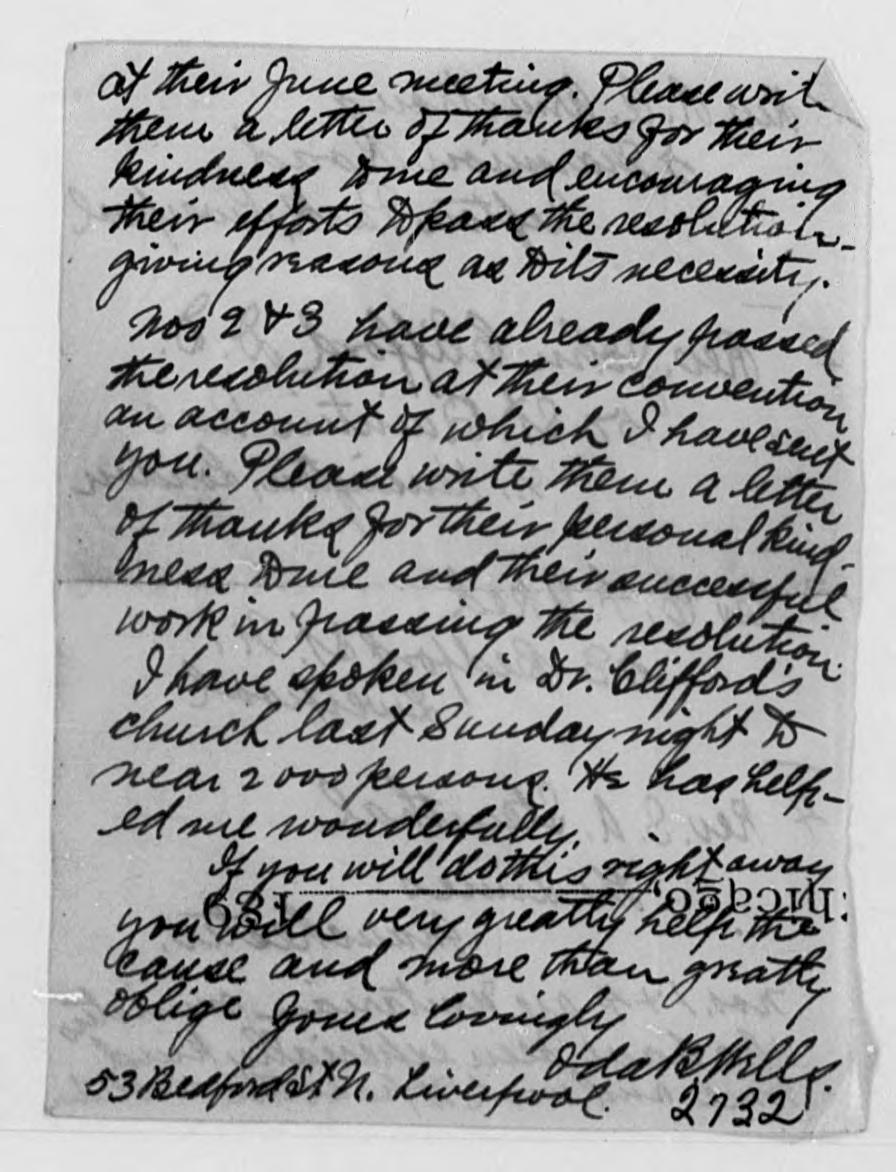 at their June meeting. Please write
them a letter of thanks for their
kindness to me and encouraging
their efforts to pass the resolution -
giving reasons as to its necessity.
Nos 2 & 3 have already passed
the resolution at their convention
an account of which I have sent
you. Please write them a letter
of thanks for their personal kind-
ness to me and their successful
work in passing the resolution.
I have spoken in Dr. Clifford's
church last Sunday night to
near 2000 persons. He has help-
ed me wonderfully.
If you will do this right away
Chicago, 189
you will very greatly help the
cause and more than greatly
oblige Yours lovingly
Ida B. Wells.
53 Bedford St N. Liverpool.
2732